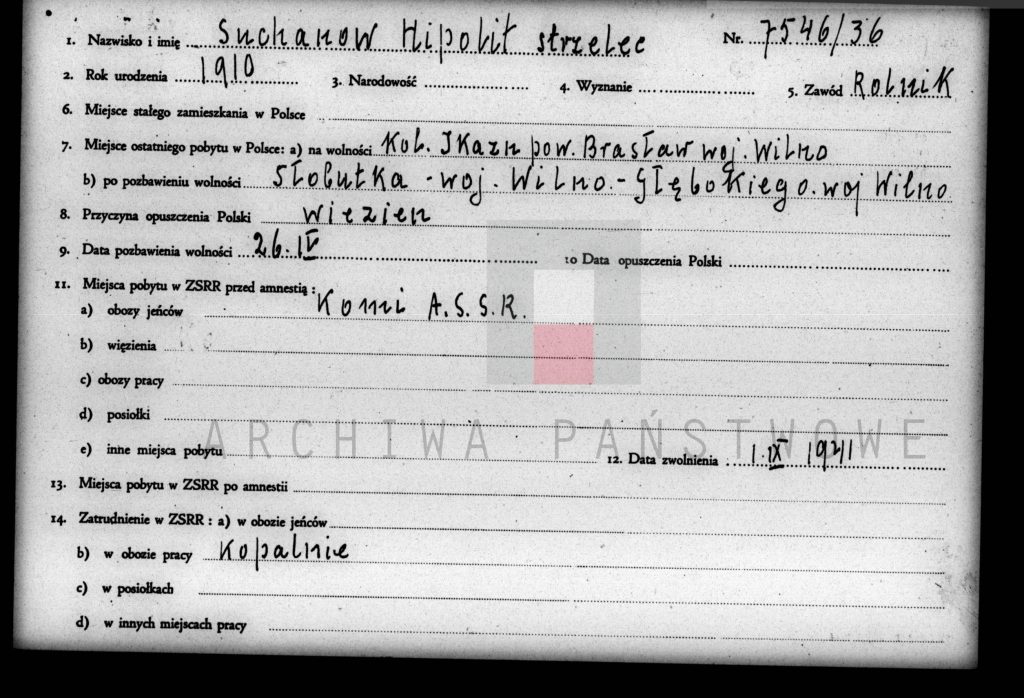 1. Nazwisko i imię Suchanow Hipolit strzelec Nr. 7546/36
2. Rok urodzenia 1910 3. Narodowość 4. Wyznanie 5. Zawód Rolnik
6. Miejsce stałego zamieszkania w Polsce
7. Miejsce ostatniego pobytu w Polsce: a) na wolności Kol. IKazn pow. Brasław woj. Wilno
b) po pozbawieniu wolności Słobutka - woj. Wilno. - Głębokiego. woj Wilno
8. Przyczyna opuszczenia Polski więzien
9. Data pozbawienia wolności 26. IV 10 Data opuszczenia Polski
11. Miejsca pobytu w ZSRR przed amnestią:
a) obozy jeńców Komi A.S.S.R.
b) więzienia
c) obozy pracy
d) posiołki
ARCHIWA PAŃSTWOWE
e) inne miejsca pobytu 12. Data zwolnienia 1. IX 1941
13. Miejsca pobytu w ZSRR po amnestii
14. Zatrudnienie w ZSRR: a) w obozie jeńców
b) w obozie pracy Kopalnie
c) w posiołkach
d) w innych miejscach pracy